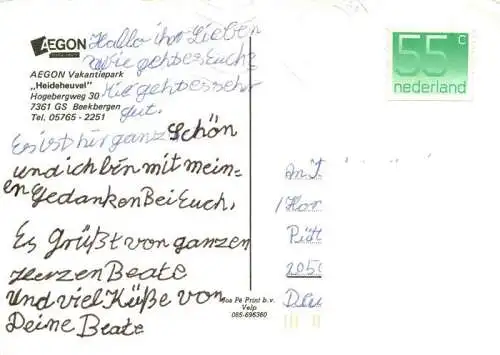 AEGON
AEGON Vakantiepark
„Heideheuvel"
Hogebergweg 30
7361 GS Beekbergen
Tel. 05765 - 2251
Hallo ihr Lieben
wie geht es Euch?
Mir geht es sehr
gut.
Es ist hir ganz Schön
und ich bin mit mein=
en Gedanken Bei Euch.
Es Grüßt von ganzen
Herzen Beate
Und viel Küße von
Deine Beate
55 c
nederland
An
205
Pe Print b.v.
Velp
085-696360